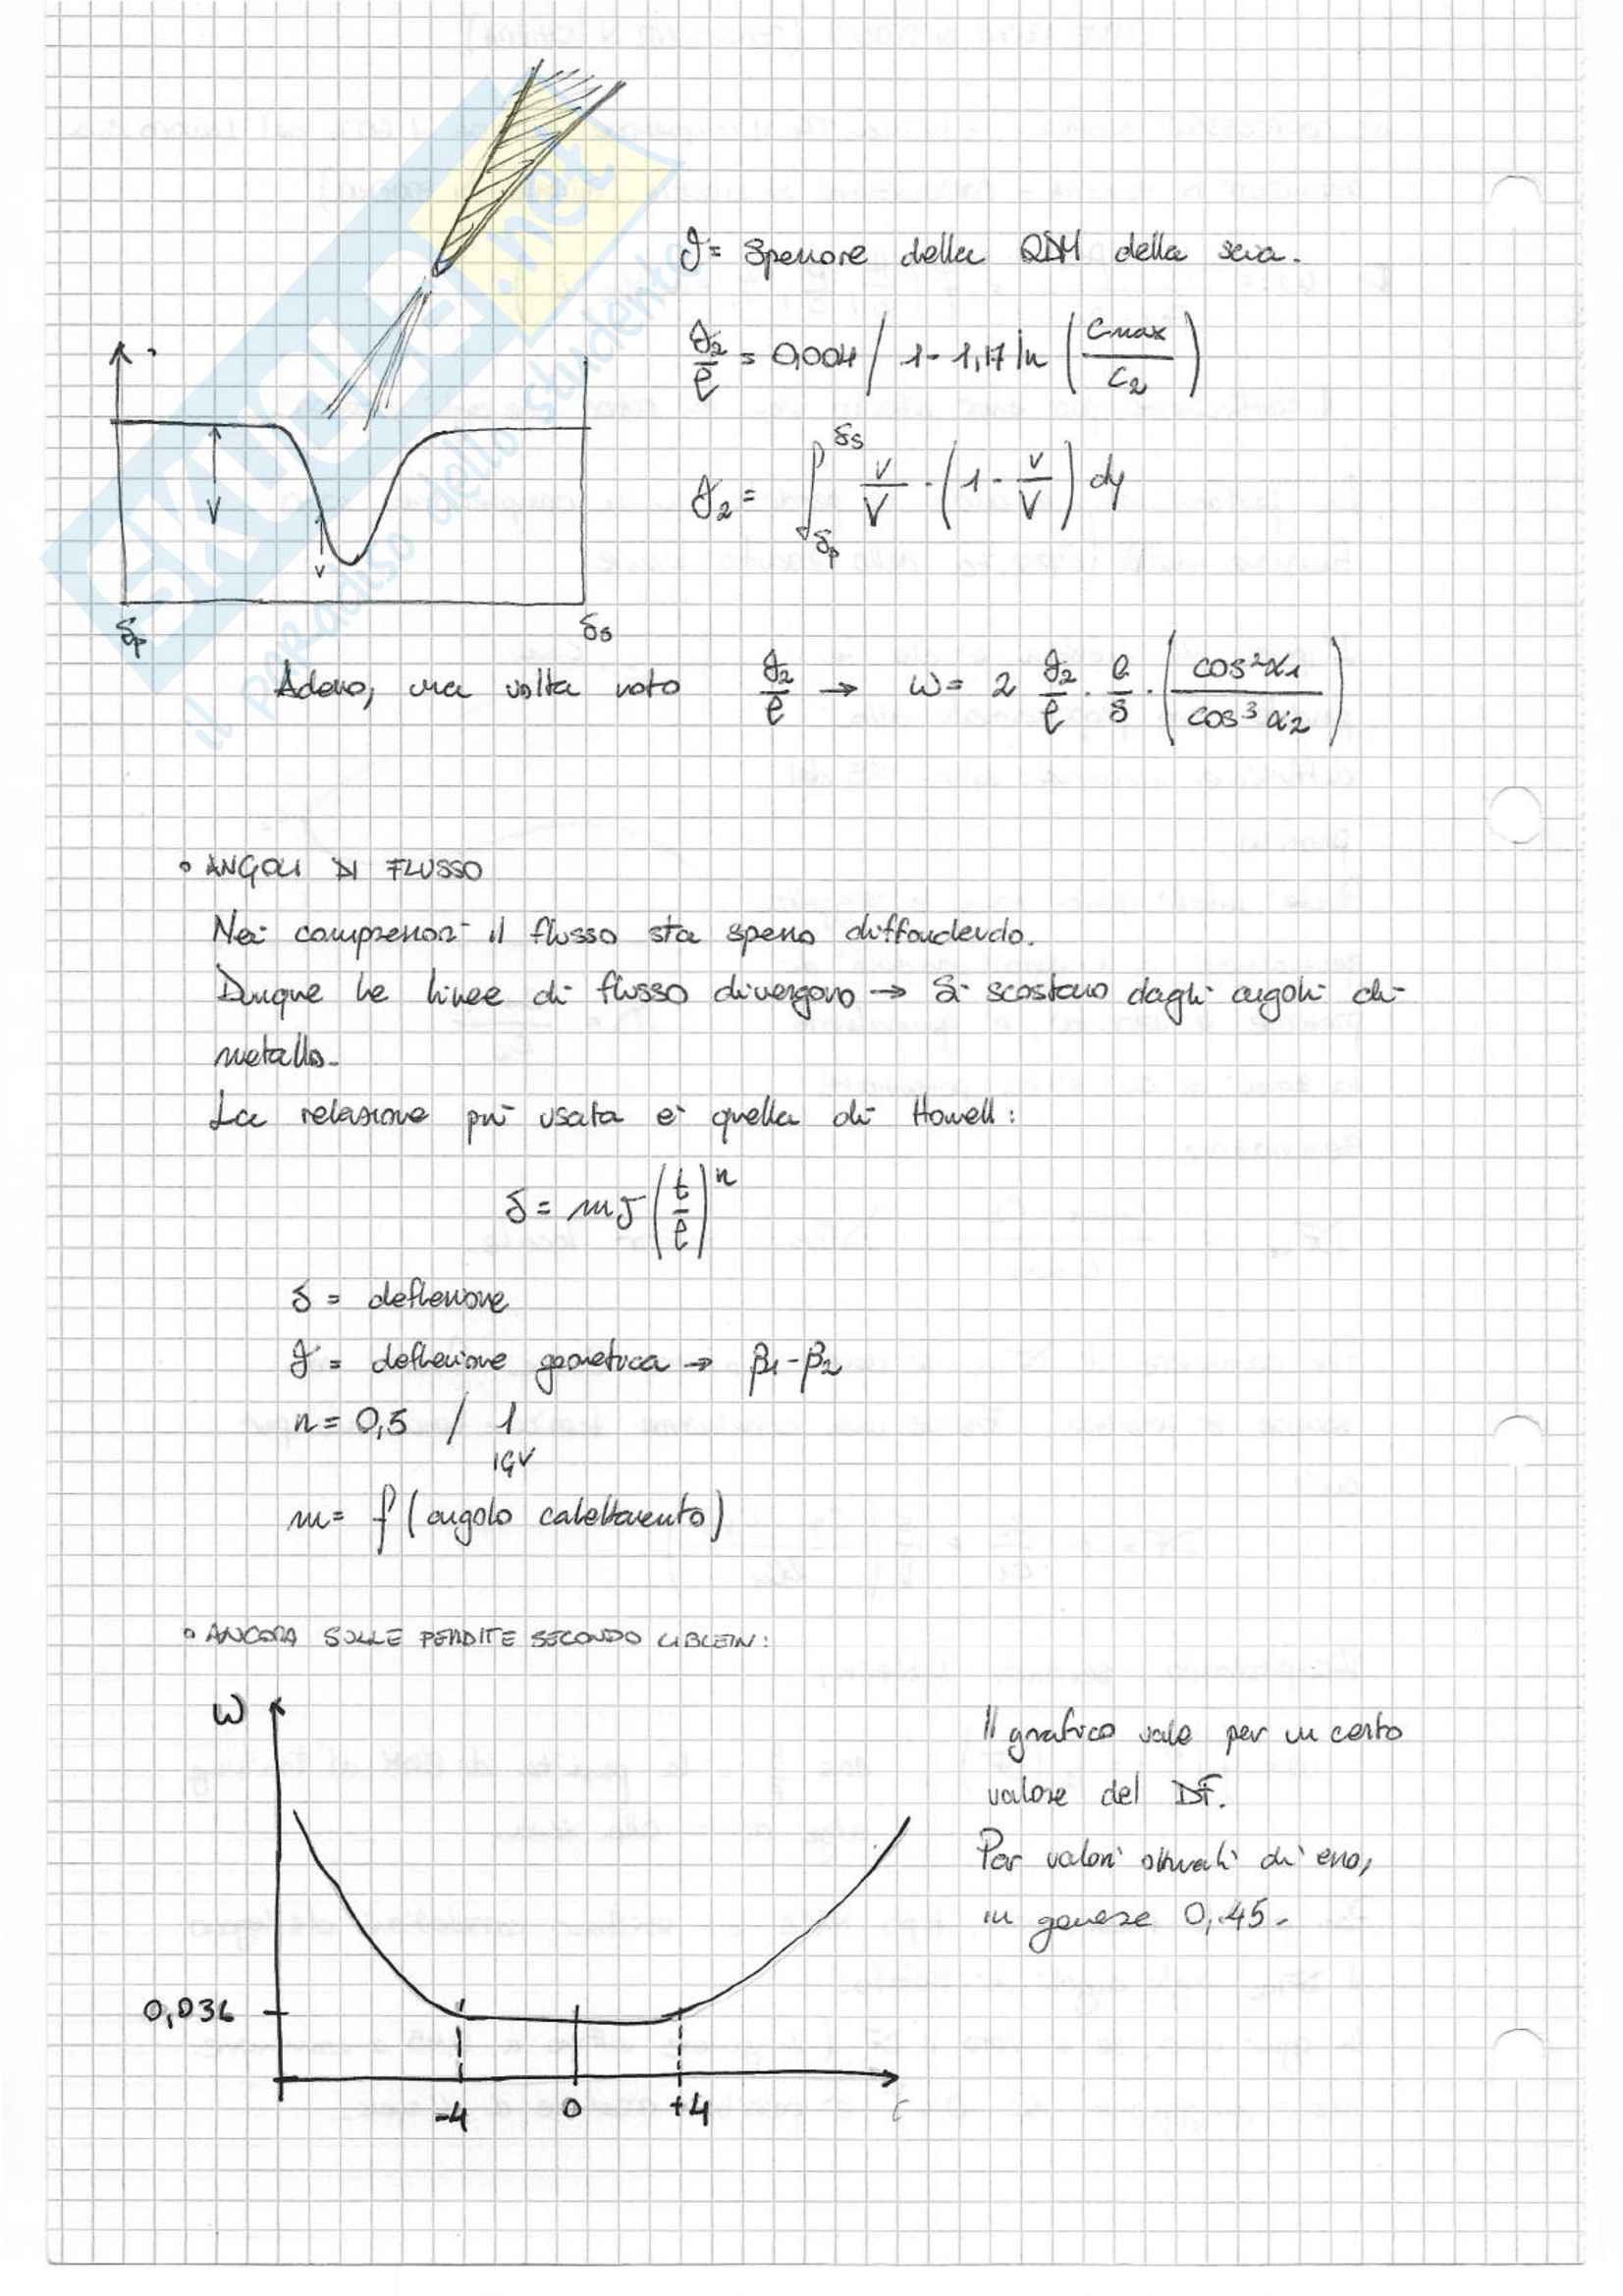 ϑ = spessore della QDM della scia.
ϑ₂/ℓ = 0,004 / 1 - 1,17 ln (Cmax/C₂)
ϑ₂ = ∫ δp δs v/V · (1 - v/V) dy
V
v
δp δs
Adesso, una volta noto ϑ₂/ℓ → ω = 2 ϑ₂/ℓ · ℓ/s · (cos²α₁/cos³α₂)
• ANGOLI DI FLUSSO
Nei compressori il flusso sta spesso diffondendo.
Dunque le linee di flusso divergono → Si scostano dagli angoli di
metallo.
La relazione più usata è quella di Howell:
δ = m ϑ (t/ℓ)ⁿ
δ = deflessione
ϑ = deflessione geometrica → β₁ - β₂
n = 0,5 / 1
IGV
m = f (angolo calettamento)
• ANCORA SULLE PERDITE SECONDO LIBLEIN:
ω
Il grafico vale per un certo
valore del DF.
Per valori attuali di esso,
in genere 0,45.
0,036
-4 0 +4 i
SKUOLA.net
il paradiso dello studente